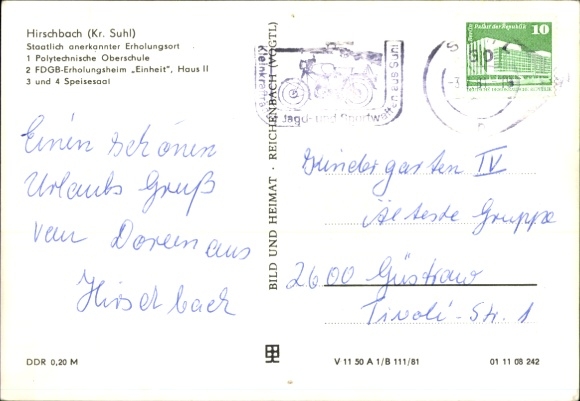 Hirschbach (Kr. Suhl)
Staatlich anerkannter Erholungsort
1 Polytechnische Oberschule
2 FDGB-Erholungsheim „Einheit“, Haus II
3 und 4 Speisesaal
Einen schönen
Urlaubs Gruß
von Doreen aus
Hirschbach
DDR 0,20 M
BILD UND HEIMAT · REICHENBACH (VOGTL)
Kleinkrafträ
Jagd- und Sportwaff
Berlin, Palast der Republik
10
Kindergarten IV
Älteste Gruppe
2600 Güstrow
Tivoli-Str. 1
V 11 50 A 1/B 111/81
01 11 08 242